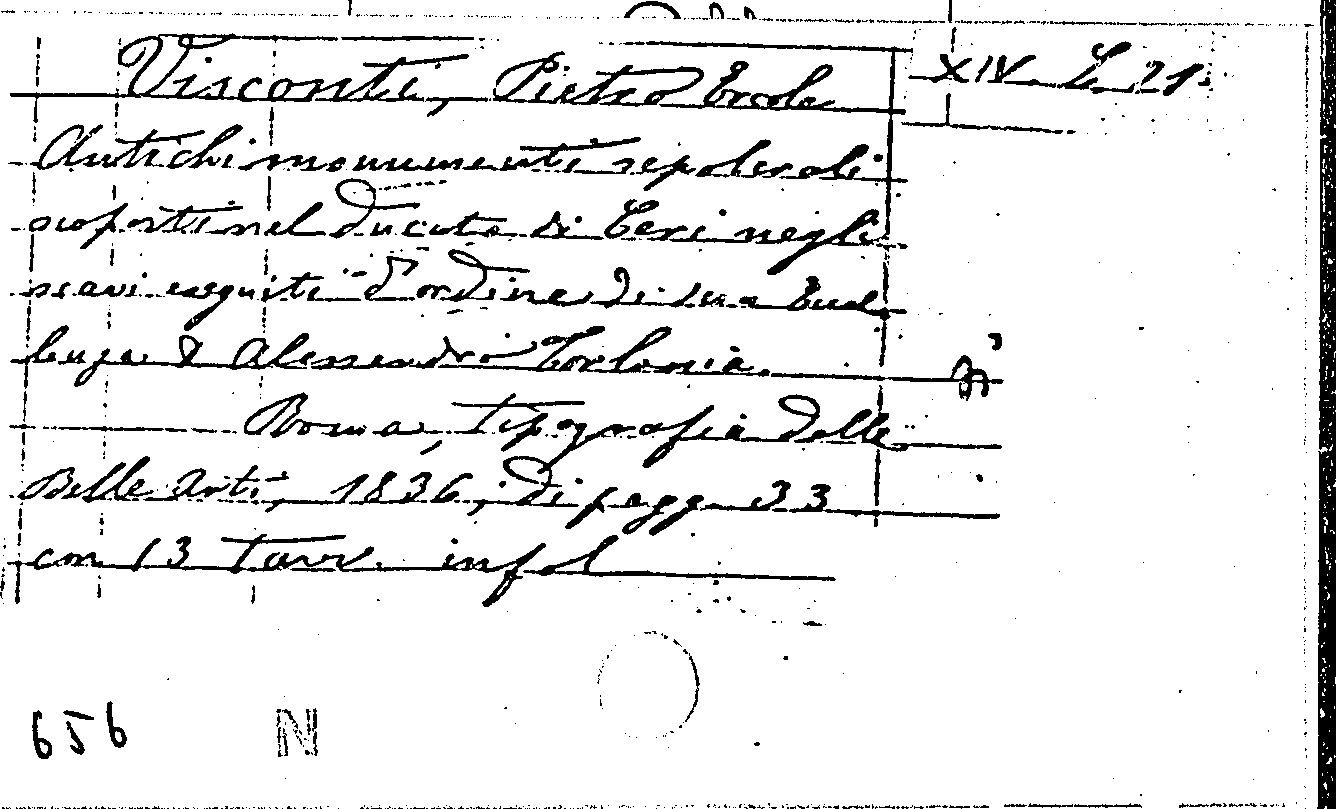 Visconti, Pietro Ercole
XIV. L. 21.
Antichi monumenti sepolcrali
scoperti nel ducato di Ceri negli
scavi eseguiti d'ordine di sua Eccel
lenza D Alessandro Torlonia.
Roma, tipografia delle
Belle Arti, 1836, di pagg. 33
con 13 tavv. in fol
656 N